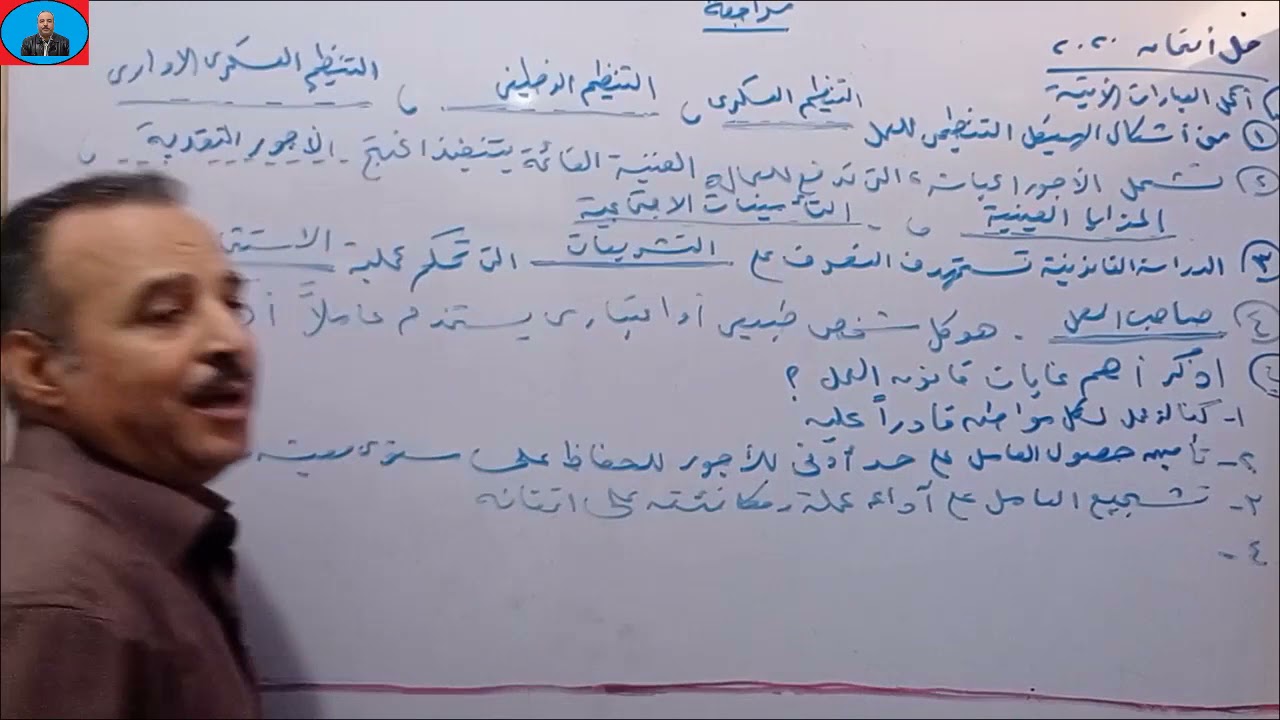 مراجعة
حل امتحان ٢٠٢٠
أكمل العبارات الآتية
١ من أشكال الهيكل التنظيمى للعمل التنظيم العسكرى و التنظيم الوظيفى و التنظيم العسكرى الادارى
٢ تشمل الأجور التى تدفع للعمالة الفنية القائمة بتنفيذ المنتج الأجور النقدية و
المزايا العينية و التأمينات الاجتماعية
٣ الدراسة القانونية تستهدف التعرف على التشريعات التى تحكم عملية
٤ صاحب العمل . هو كل شخص طبيعى أو اعتبارى يستخدم عاملاً
اذكر أهم غايات قانون العمل ؟
١- كفالة عمل لكل مواطن قادراً عليه
٢- تأمين حصول العامل على حد أدنى للأجور للحفاظ على مستوى معيشة
٣- تشجيع العامل على أداء عمله ومكافئته على اتقانه
٤-